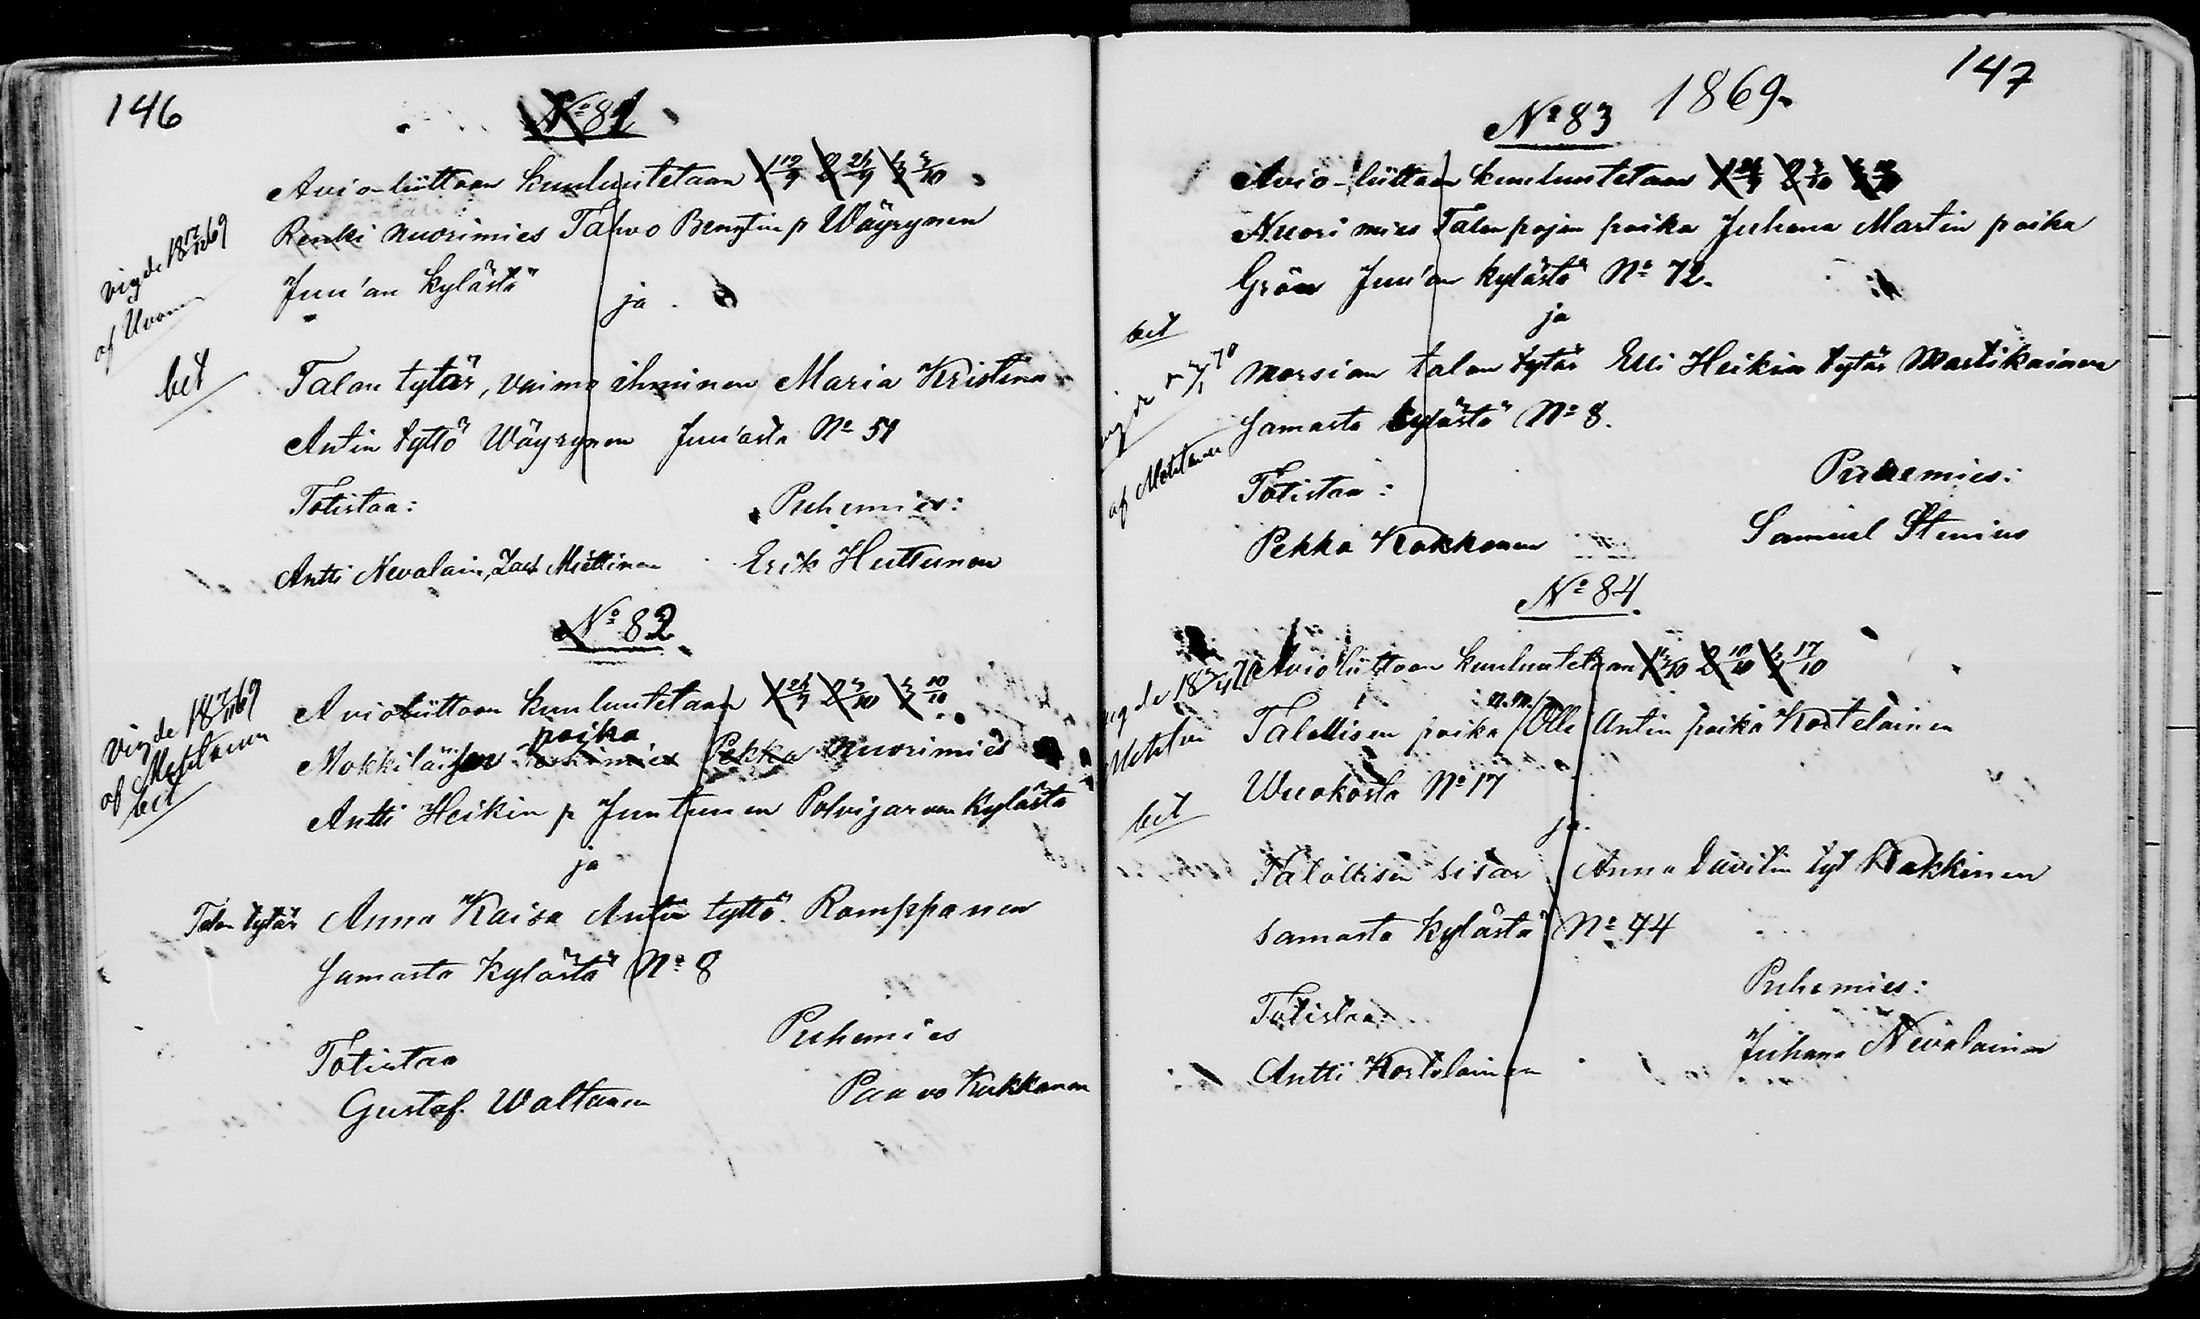 146
No 81
Avio-liittoon kuulutetaan 1 19/9 2 26/9 3 3/10
Renki nuorimies Tahvo Bengtin p Wäyrynen
Juu'an kylästä
ja
vigde 18 69
af Uvan
bet
Talon tytär, vaimo ihminen Maria Kristina
Antin tyttö Wäyrynen Juu'asta No 51
Totistaa: Puhemies:
Antti Nevalain, Zach Miettinen Erik Huttunen
No 82
Avioliittoon kuulutetaan 1 26/9 2 3/10 3 10/10
poika
Mökkiläisen Pekka nuorimies
Antti Heikin p Juntunen Polvijärven kylästä
vigde 18 69
af
bet
ja
Talon tytär Anna Kaisa Antin tyttö Romppanen
samasta kylästä No 8
Totistaa Puhemies
Gustaf Waltanen Paavo Kukkonen
1869
147
No 83
Avio-liittoon kuulutetaan 1 26/9 2 3/10 3 10/10
Nuori mies Talonpojan poika Juhana Martin poika
Grön Juu'an kylästä No 72.
ja
bet
morsian talon tytär Elli Heikin tytär Martikainen
samasta kylästä No 8.
af
Totistaa: Puhemies:
Pekka Kokkonen Samuel Stenius
No 84.
Avioliittoon kuulutetaan 1 3/10 2 10/10 3 17/10
n.m.
Talollisen poika Olli Antin poika Kortelainen
Wuokosta No 17
bet
ja
Talollisen sisar Anna Davitin tyt Kokkinen
samasta kylästä No 44
Totistaa: Puhemies:
Antti Kortelainen Juhana Nevalainen